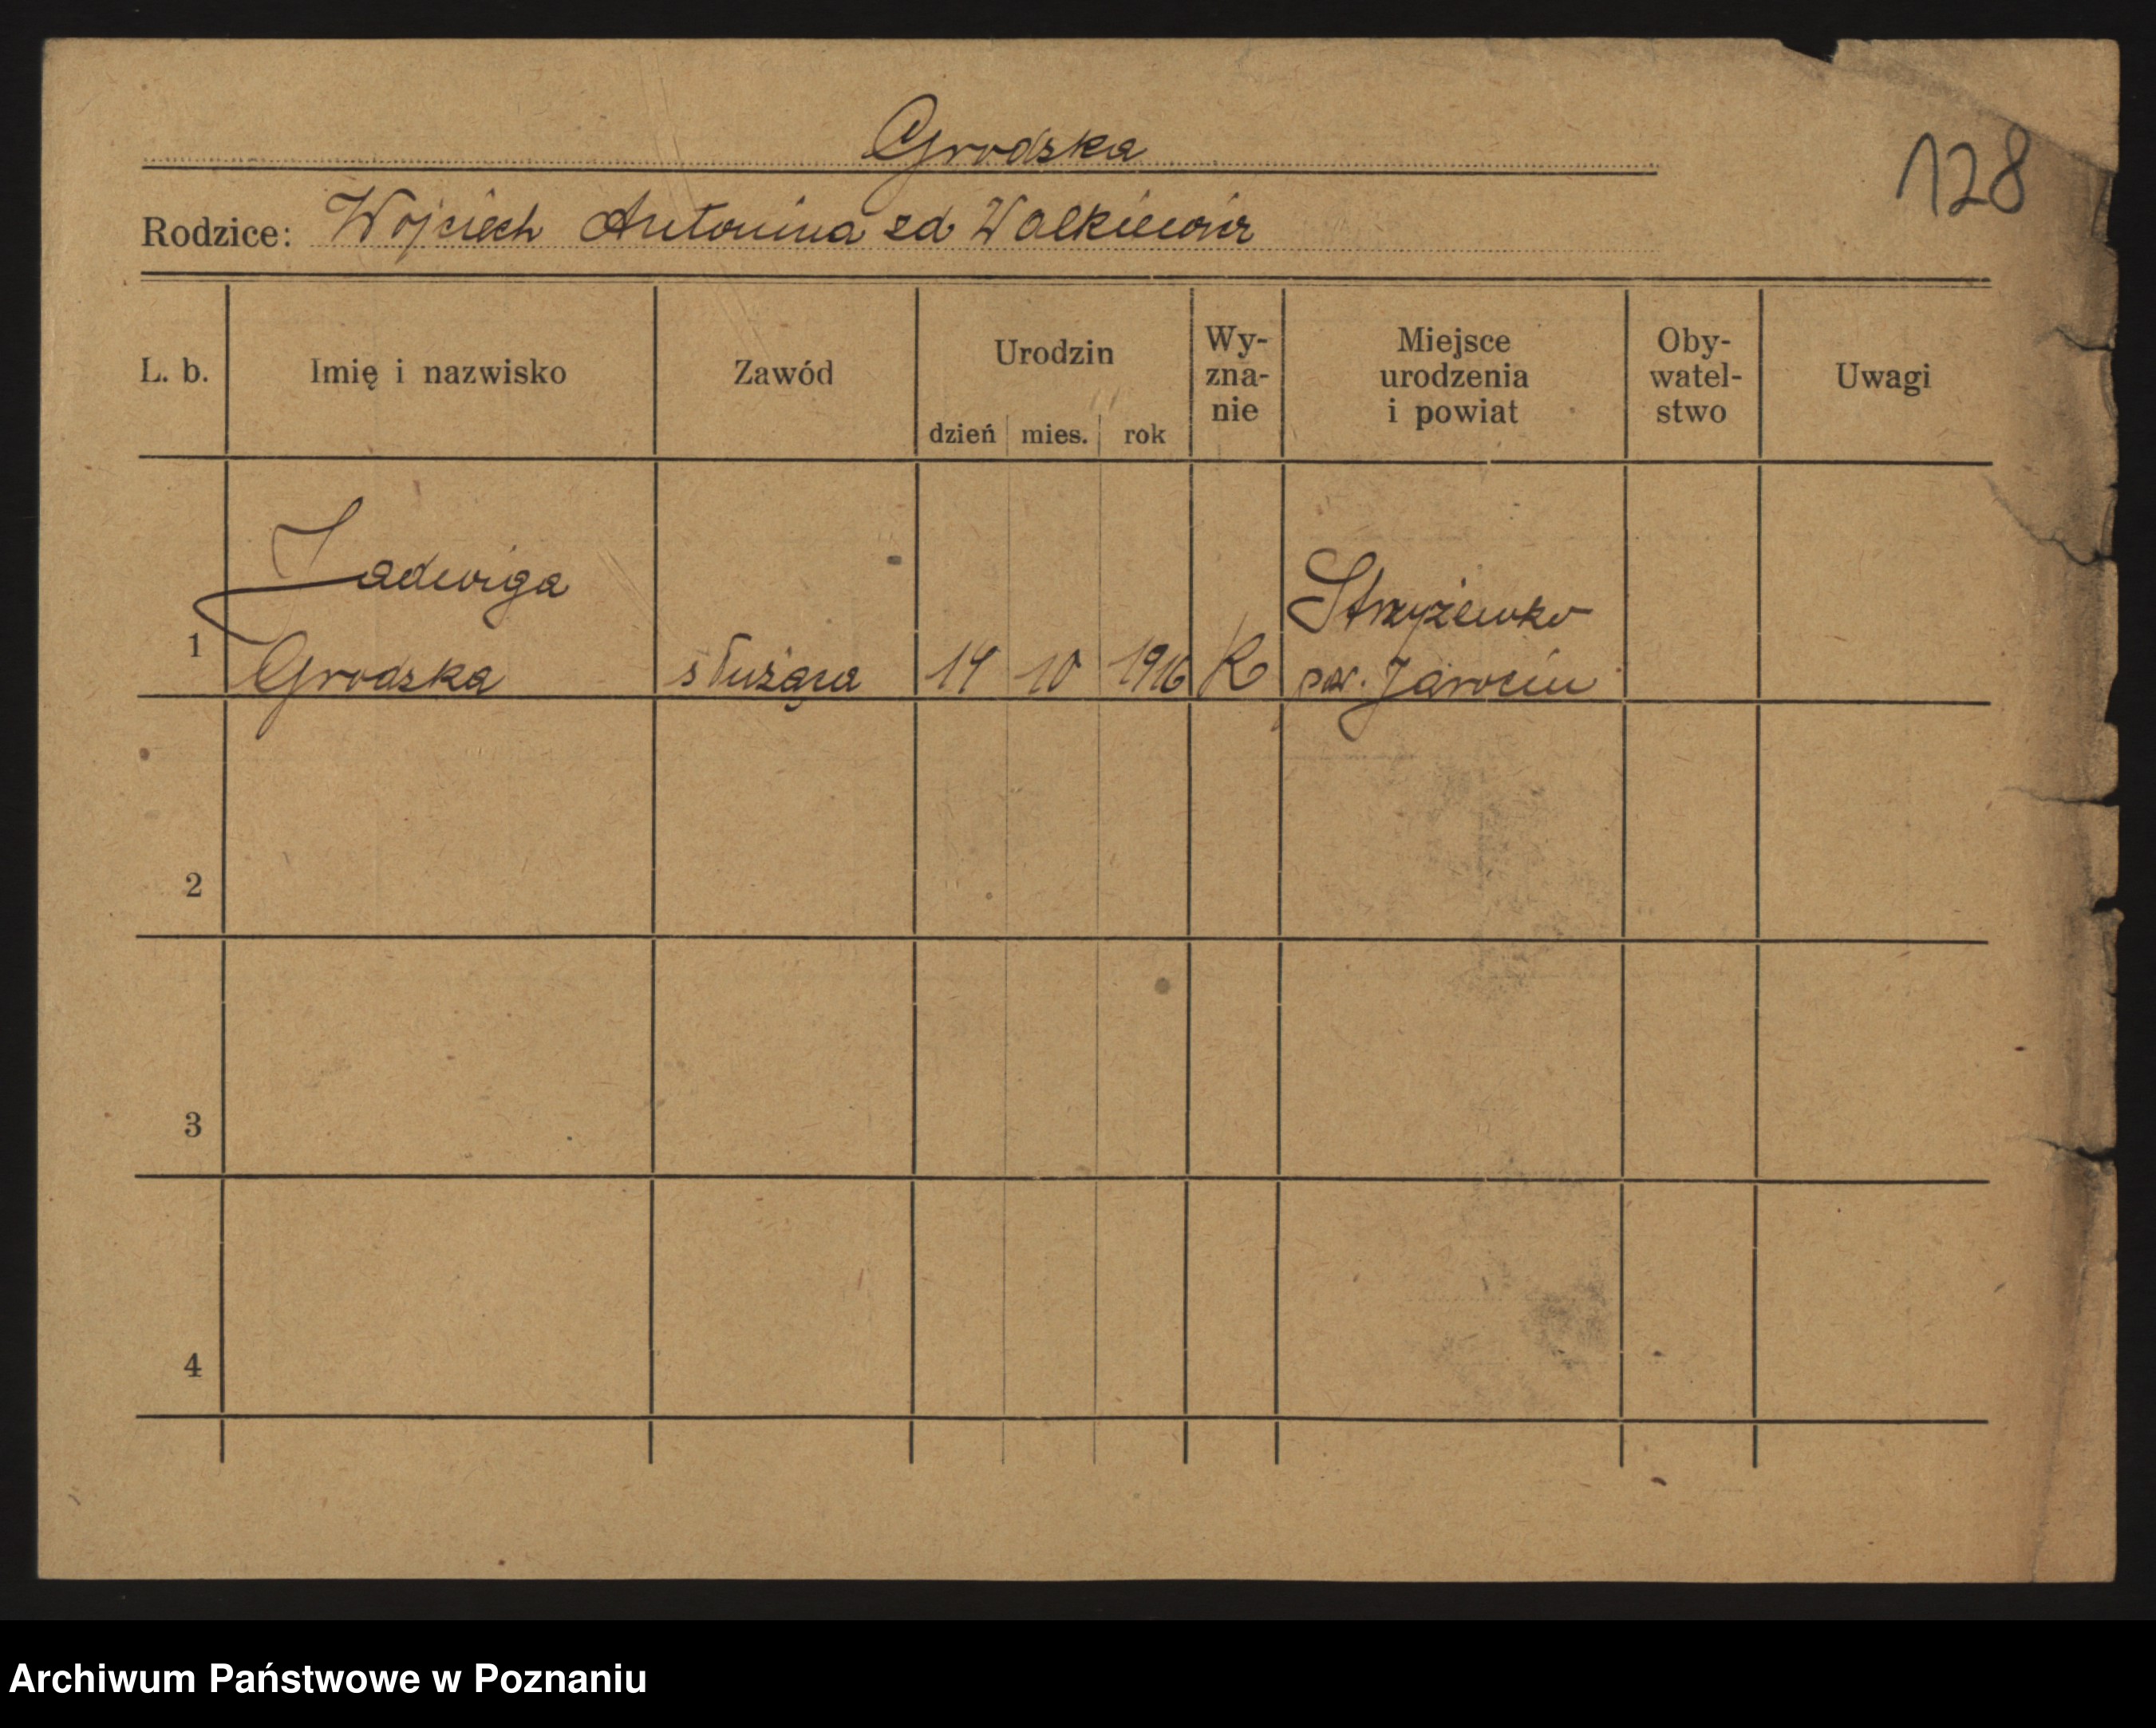 Grodzka
128
Rodzice: Wojciech Antonina zd Walkiewicz
L. b.
Imię i nazwisko
Zawód
Urodzin
dzień mies. rok
Wy-
zna-
nie
Miejsce
urodzenia
i powiat
Oby-
watel-
stwo
Uwagi
Jadwiga
Strzyżewko
1 Grodzka służąca 14 10 1916 K pow. Jarocin
2
3
4
Archiwum Państwowe w Poznaniu